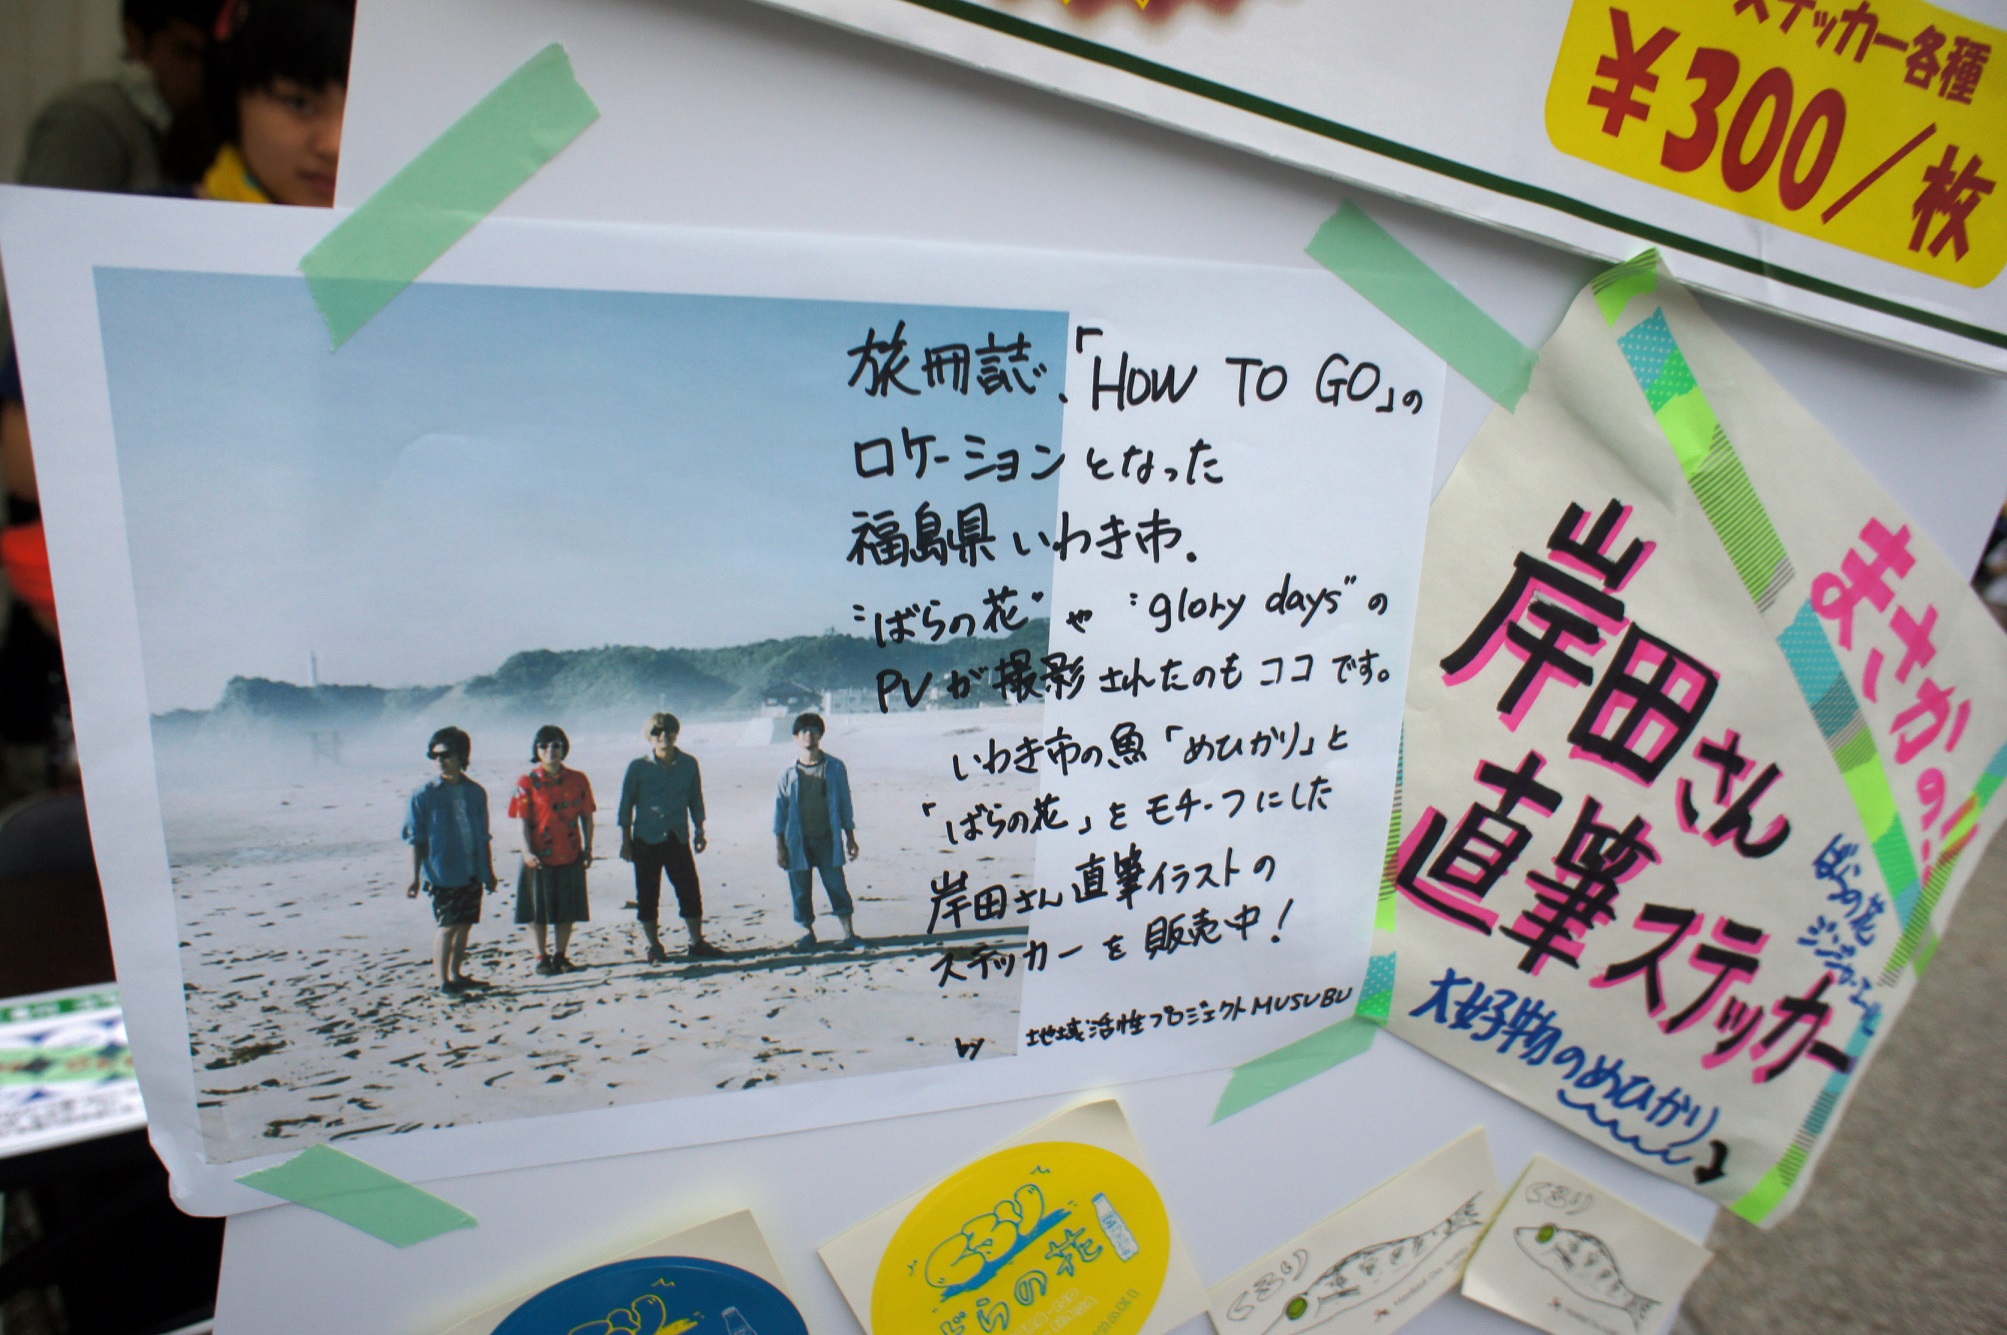 ステッカー各種
¥300/枚
旅冊誌、「HOW TO GO」の
ロケーションとなった
福島県いわき市.
"ばらの花"や"glory days"の
PVが撮影されたのもココです。
いわき市の魚「めひかり」と
「ばらの花」をモチーフにした
岸田さん直筆イラストの
ステッカーを販売中!
by 地域活性プロジェクトMUSUBU
まさかの!
岸田さん
直筆ステッカー
ばらの花
大好物のめひかり
くるり
ばらの花
くるり
くるり